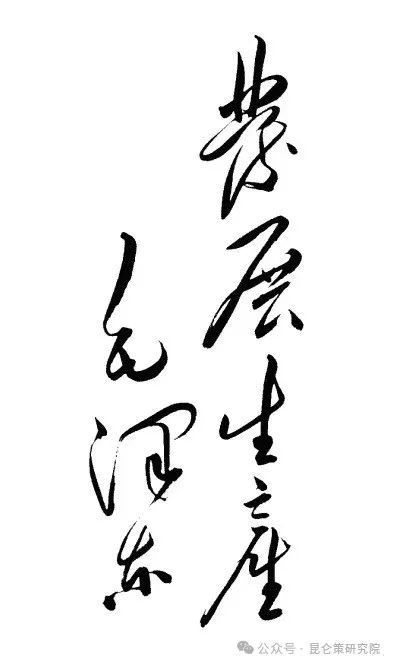 發展生產
毛澤东
公众号 · 昆仑策研究院